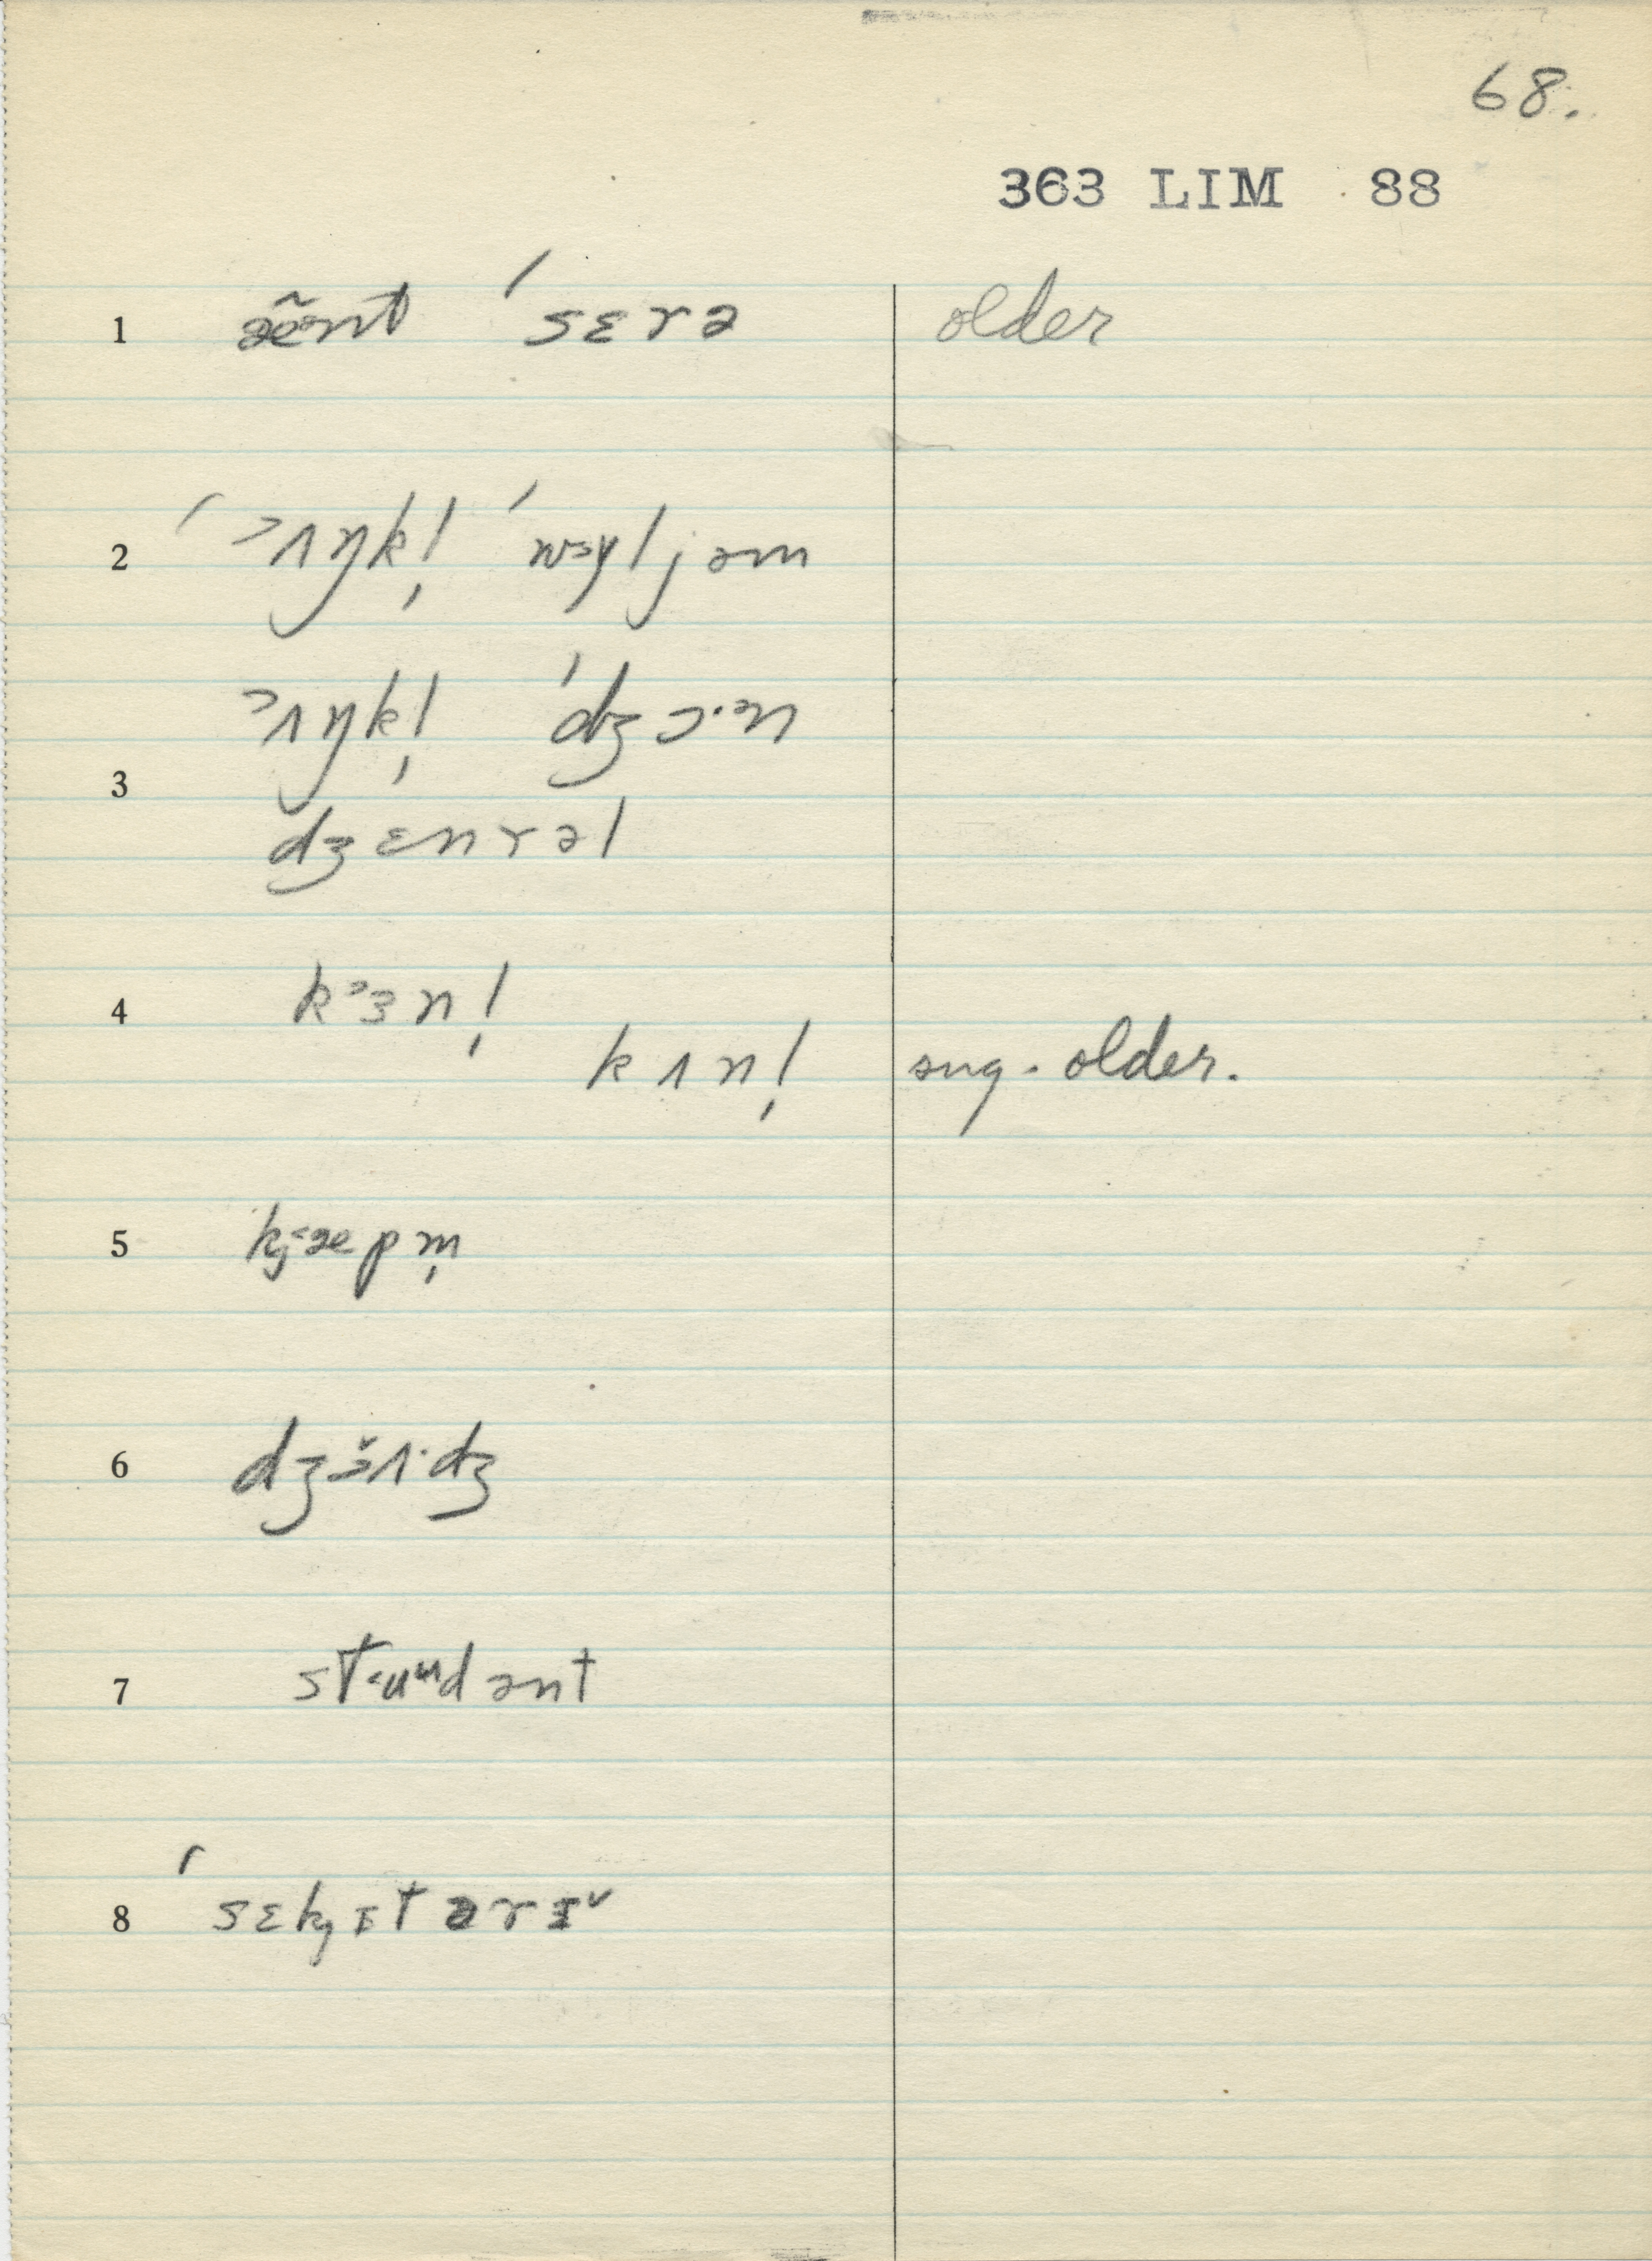 68.
363 LIM 88
1 æ̃ᵊnt ˈsɛrə older
2 ˈᵊʌŋkl̩ ˈwᵊɣljəm
3 ᵊʌŋkl̩ ˈdʒɔ·ᵊn
dʒɛnrəl
4 kᵊɜn l̩
kʌnl̩ sug. older.
5 kj˂æpm̩
6 dʒɜ̆ʌ·dʒ
7 st˂uʉdənt
8 ˈsɛkjɪtərɪ˅